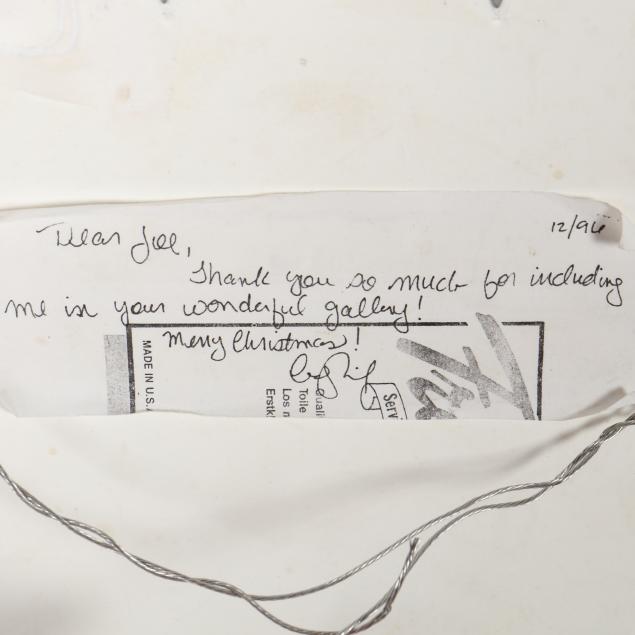 Dear Joe,
12/96
Thank you so much for including
me in your wonderful gallery!
Merry Christmas!
MADE IN U.S.A
Quali
Toile
Los n
Erstk
Serv